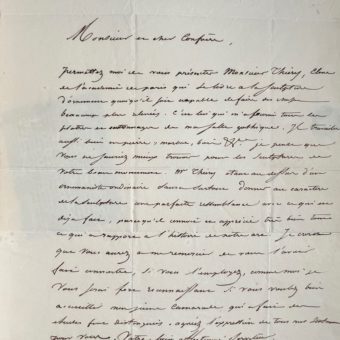 Monsieur et cher Confrère,
permettez moi de vous présenter Monsieur Thiery, Elève
de l'académie de paris qui se livre à la sculpture
d'ornement quoiqu'il soit capable de faire des
beaucoup plus élevées. C'est lui qui m'a fourni tous les
plâtres de ma salle gothique. Il travaille
aussi bien en pierre, marbre, bois &c. je pense que
vous ne sauriez mieux trouver pour les sculptures de
votre beau monument. Mr Thiery étant au dessus d'un
ornemaniste ordinaire saura surtout donner au caractère
de la sculpture une parfaite ressemblance avec ce qui est
déjà fait, parcequ'il connait et apprécie très bien tout
ce qui a rapport à l'histoire de notre art. Je crois
que vous aurez à me remercier de vous l'avoir
fait connaitre, si vous l'employez, comme moi je
vous serai fort reconnaissant si vous voulez bien
accueillir un jeune camarade qui a fait des
études fort distinguées, agréez l'expression de tous mes
pour vous